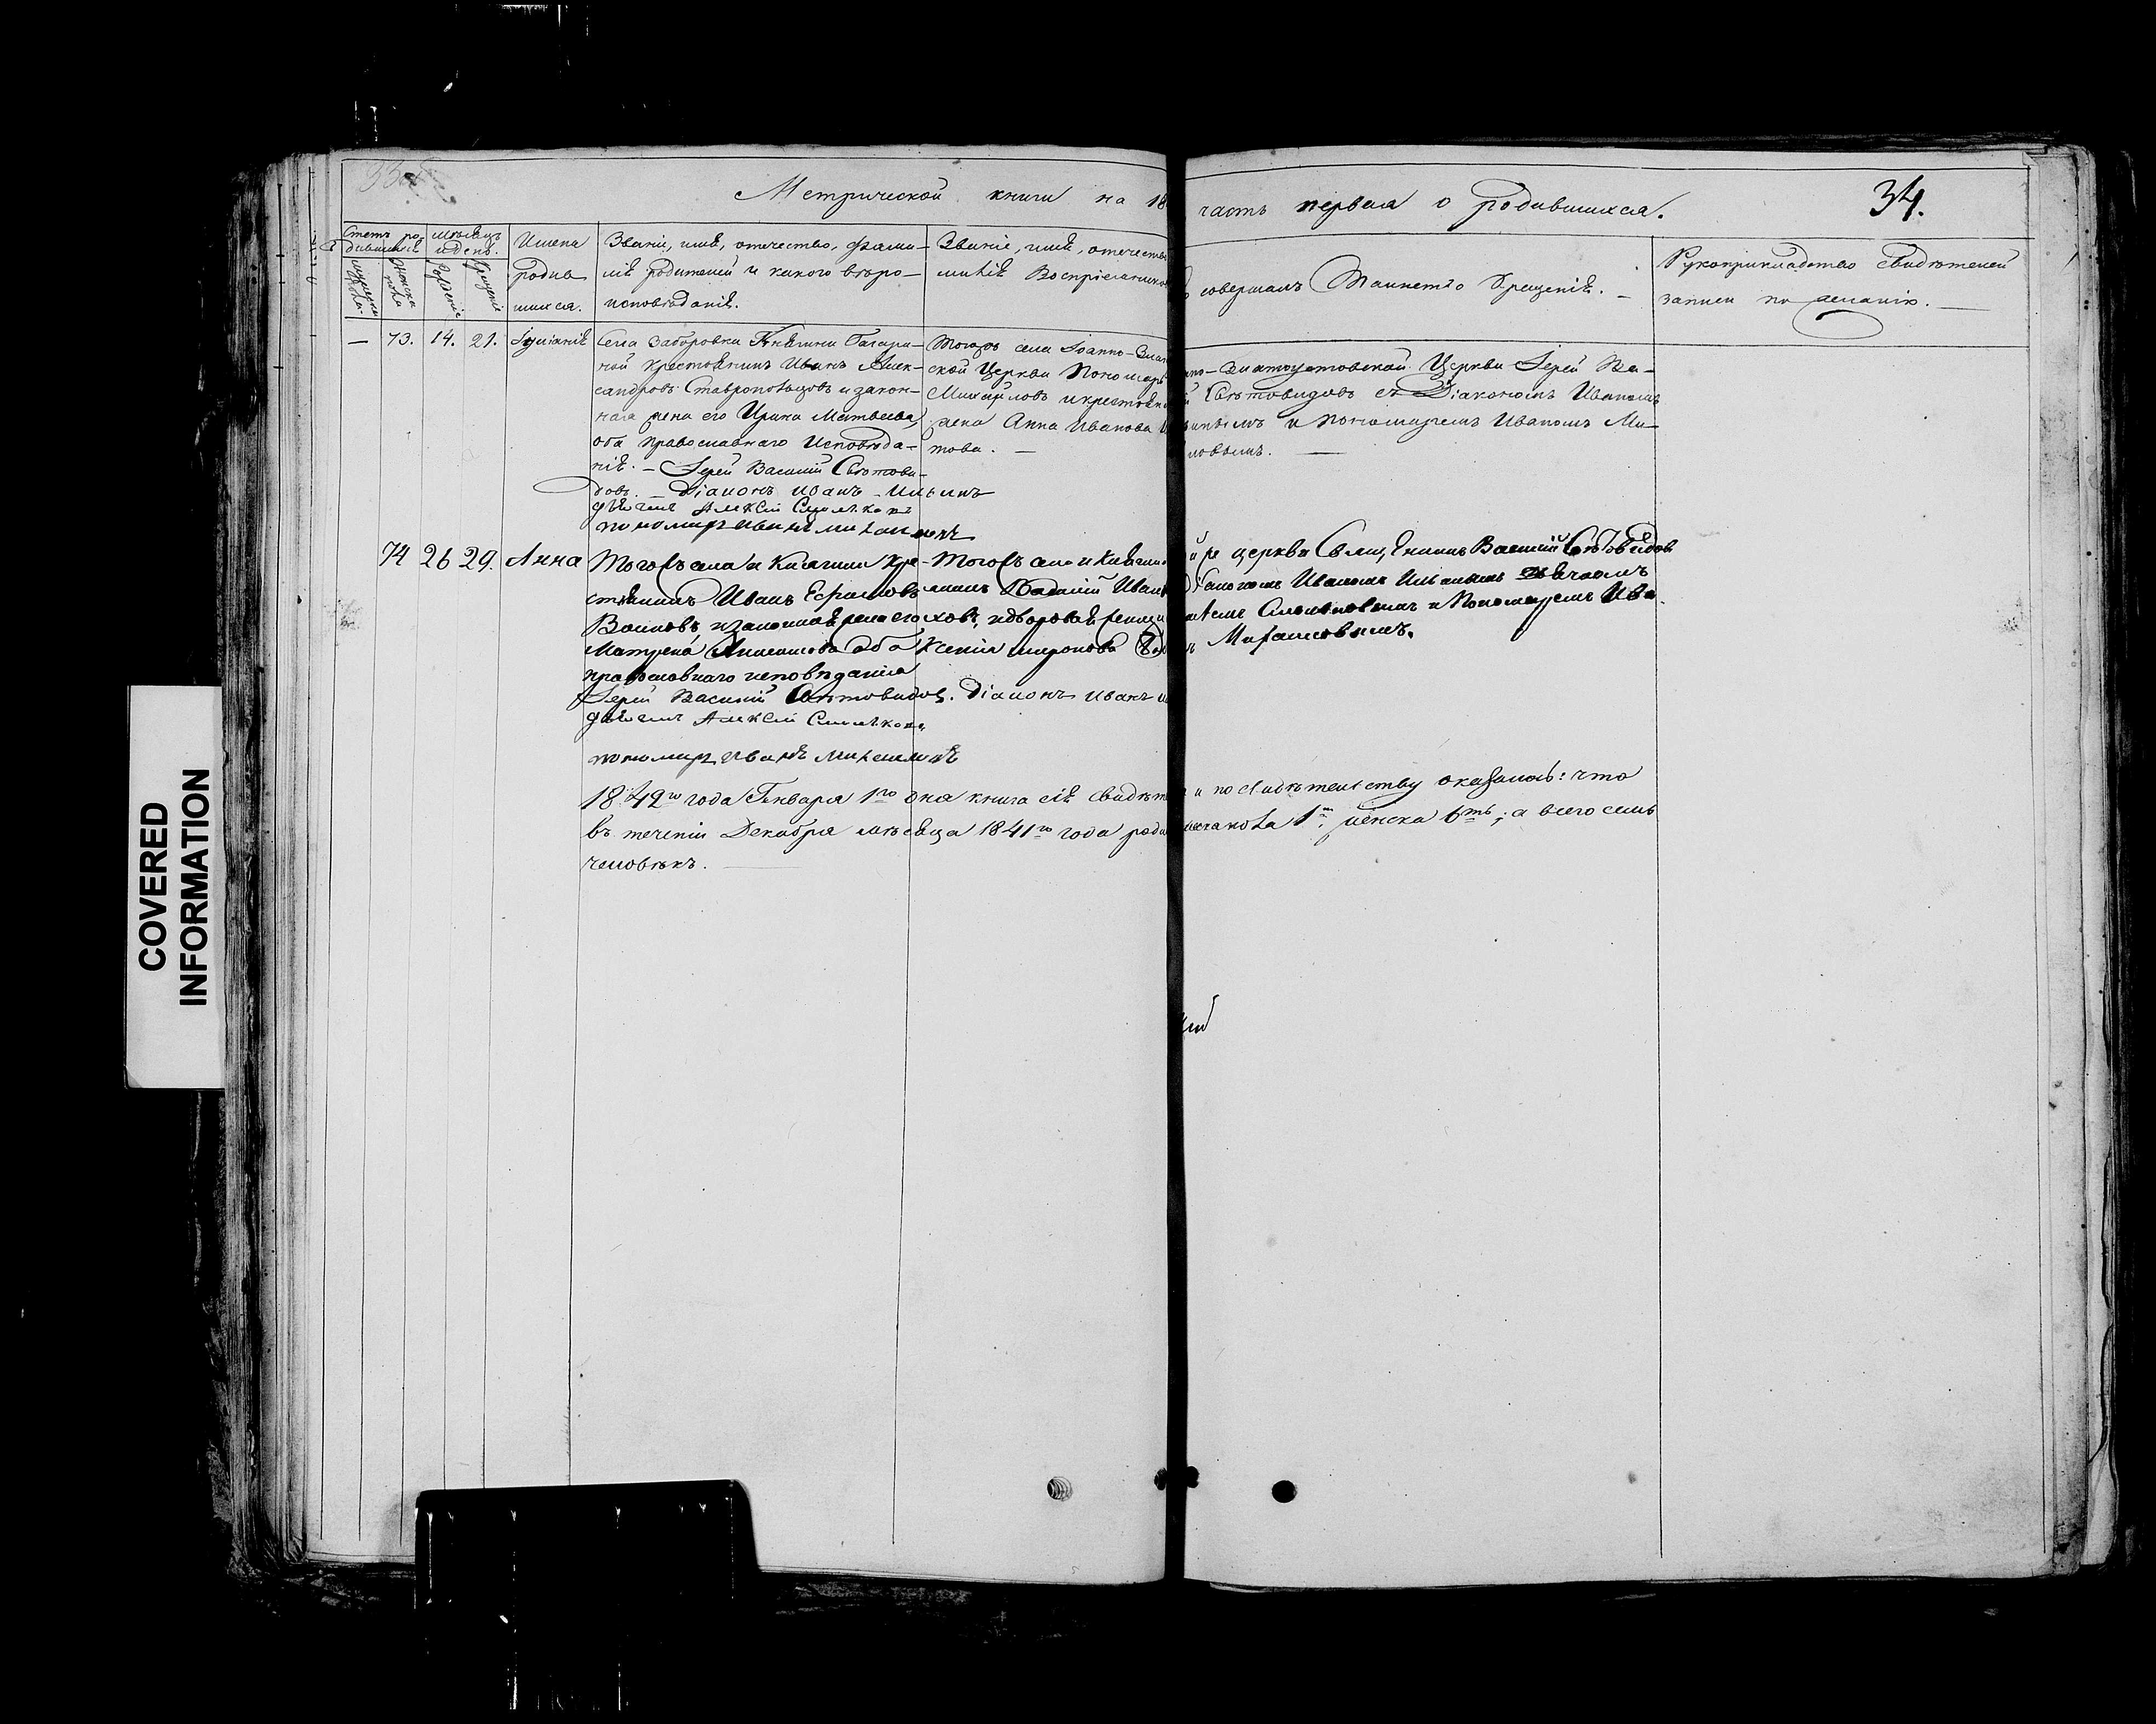 Метрической книги на 18
часть первая о родившихся.
34.
Счетъ ро-
дившихся
мѣсяцъ
и день.
мужеска
пола.
женска
пола
рожденіе
крещеніе
Имена
родив
шихся.
Званіе, имя, отечество, фами-
лія родителей и какого вѣро-
исповѣданія.
Званіе, имя, отечество
милія Воспріемников
совершалъ Таинство Крещенія. –
Рукоприкладство свидѣтелей
записи по желанію. —
— 73. 14. 21. Іуліанія
Села Заборовки Княгини Гагари-
ной крестьянинъ Иванъ Алек-
сандровъ Ставропольцовъ и закон-
ная жена его Ирина Матвеева,
оба православнаго Исповѣда-
нія. – Іерей Василій Свѣтови-
довъ. – Діаконъ Иванъ Ильинъ
дьячекъ Алексѣй Смольковъ
пономарь Иванъ Михаиловъ
Тогожъ села Іоанно-Злат
ской Церкви Пономарь
Михайловъ и крестьянс
жена Анна Иванова
това. —
но-Златоустовской Церкви Іерей Ва-
й Свѣтовидовъ съ Діакономъ Иваномъ
инымъ и Пономаремъ Иваномъ Ми-
ловымъ. —
74 26 29. Анна
Тогожъ села и Княгини Кре-
стьянинъ Иванъ Ефимовъ
Воиновъ, и законная жена его
Матрена оба
православнаго исповѣданія
Іерей Василій Свѣтовидовъ. Діаконъ Иванъ И
дьячекъ Алексѣй Смольковъ
пономарь Иванъ Михаиловъ
Тогожъ села и Княгин
Василій Иван
ховъ, и дворовая
Ксенія Миронова
й же церкви Священникъ Василій Свѣтовидовъ
Діакономъ Иваномъ Ильинымъ дьячкомъ
Смольковымъ и Пономаремъ Ива
Михаиловымъ.
1842го года Генваря 1го дня книга сія свидѣт
и по свидѣтельству оказалось: что
въ теченіи Декабря мѣсяца 1841го года роди
ческа пола 1нъ, женска 6ть; а всего семь
человѣкъ. —
COVERED
INFORMATION